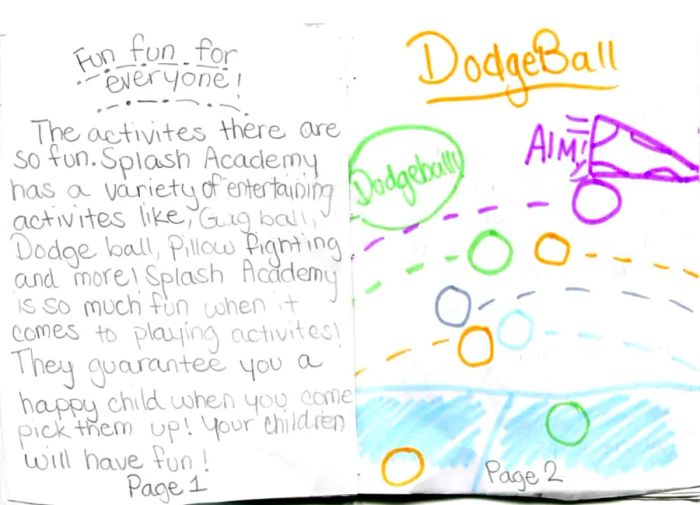 Fun fun for
everyone!
The activites there are
so fun. Splash Academy
has a variety of entertaining
activites like, Gag ball,
Dodge ball, Pillow fighting
and more! Splash Academy
is so much fun when it
comes to playing activites!
They guarantee you a
happy child when you come
pick them up! Your children
will have fun!
Page 1
DodgeBall
AIM!
Dodgeball!
Page 2